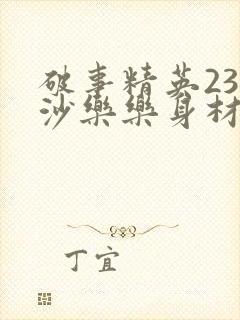 破事精英23
沙樂樂身材
丁宜